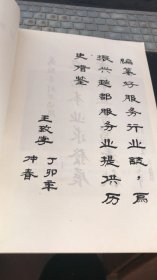 編纂好服务行业誌，為
振兴趙都服务业提供历
史借鉴
王致 丁卯年
仲春